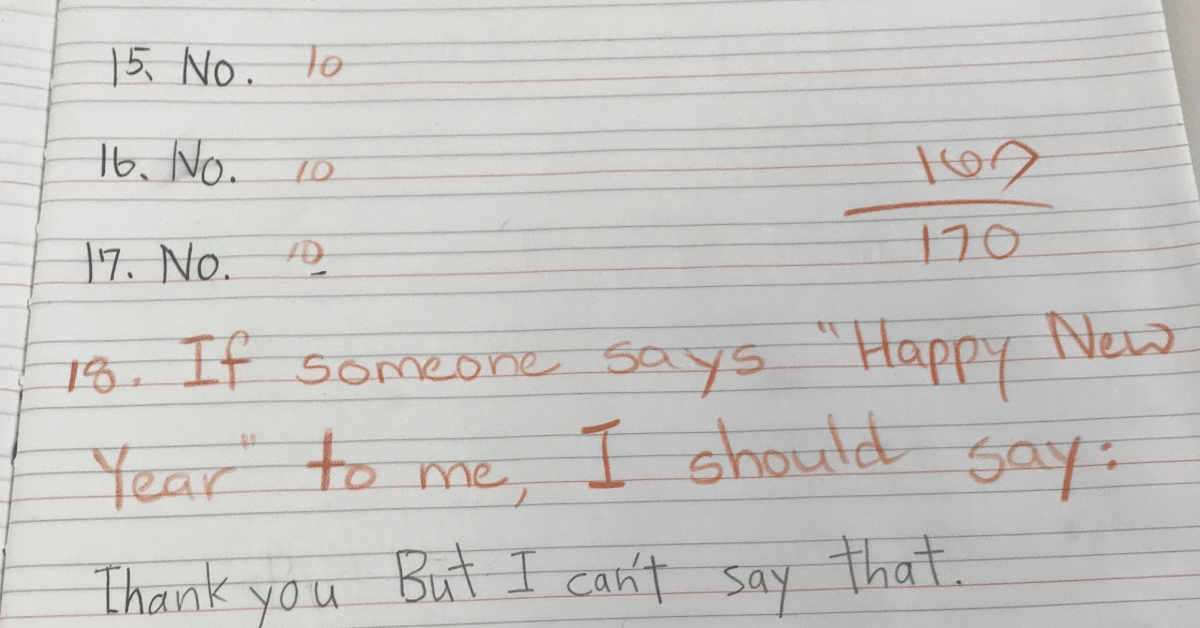 15. No. 10
16. No. 10
167
17. No. 10
170
18. If someone says "Happy New
Year" to me, I should say:
Thank you But I can't say that.